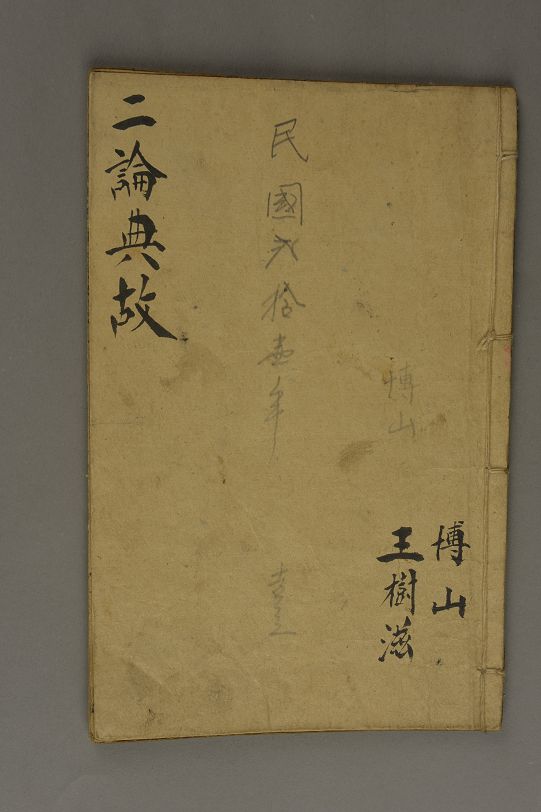 博山
王樹滋
博山
民國弍拾壹年
二論典故